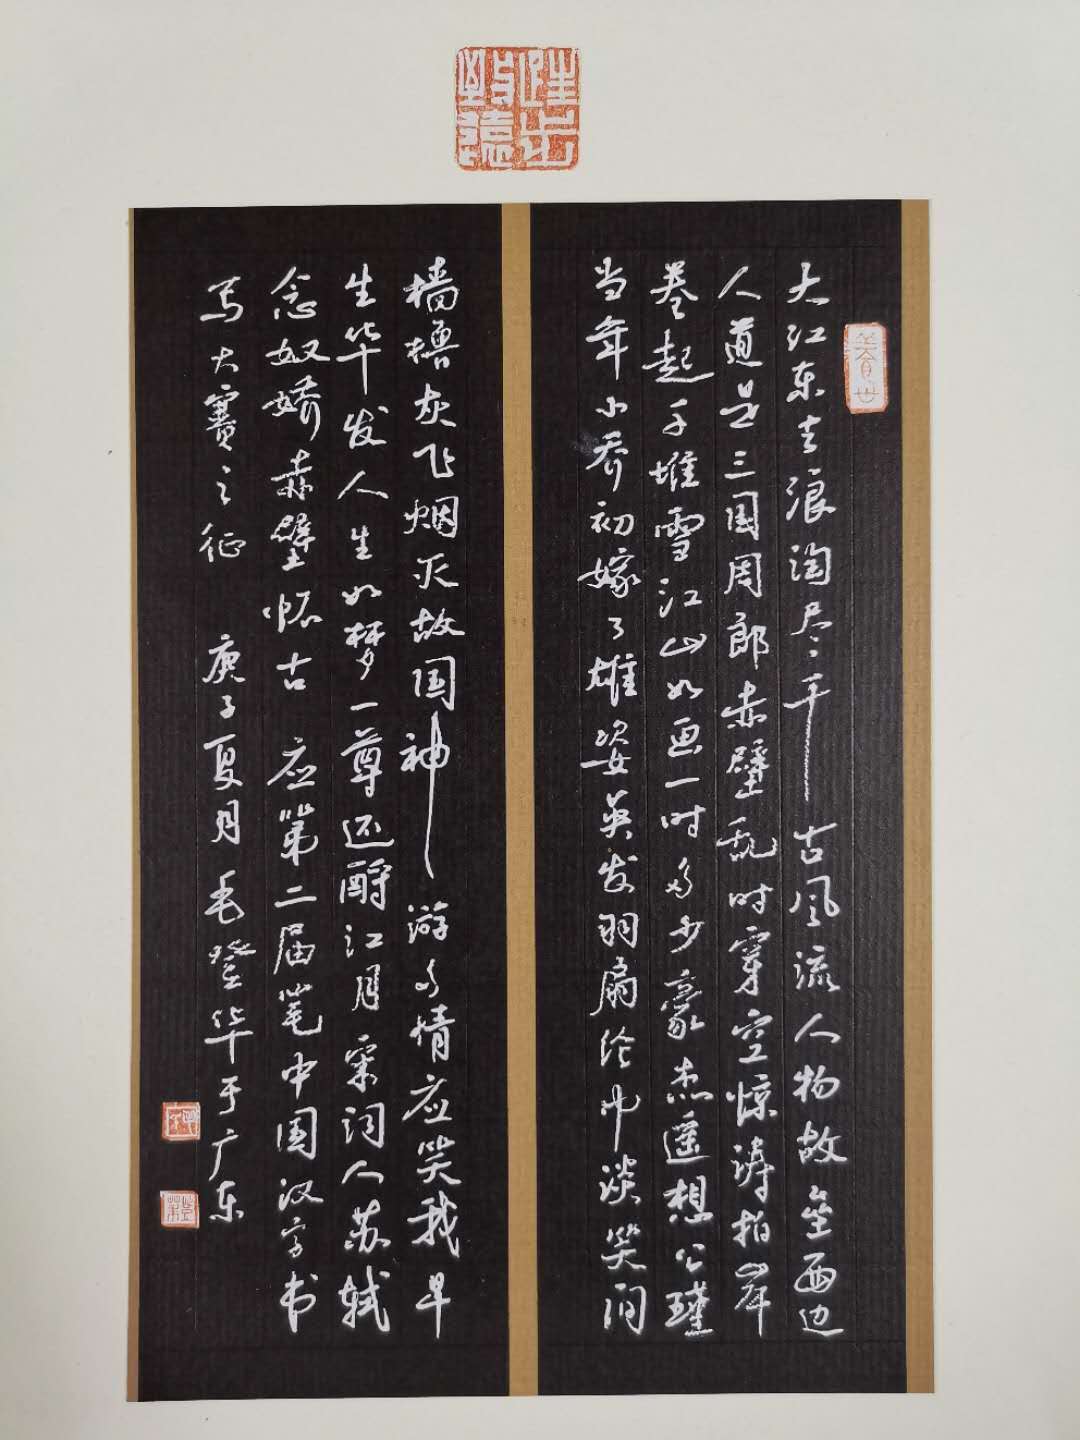 大江东去浪淘尽千古风流人物故垒西边
人道是三国周郎赤壁乱时穿空惊涛拍岸
卷起千堆雪江山如画一时多少豪杰遥想公瑾
当年小乔初嫁了雄姿英发羽扇纶巾谈笑间
樯橹灰飞烟灭故国神游多情应笑我早
生华发人生如梦一尊还酹江月宋词人苏轼
念奴娇赤壁怀古 应第二届笔中国汉字书
写大赛之征 庚子夏月毛登华于广东